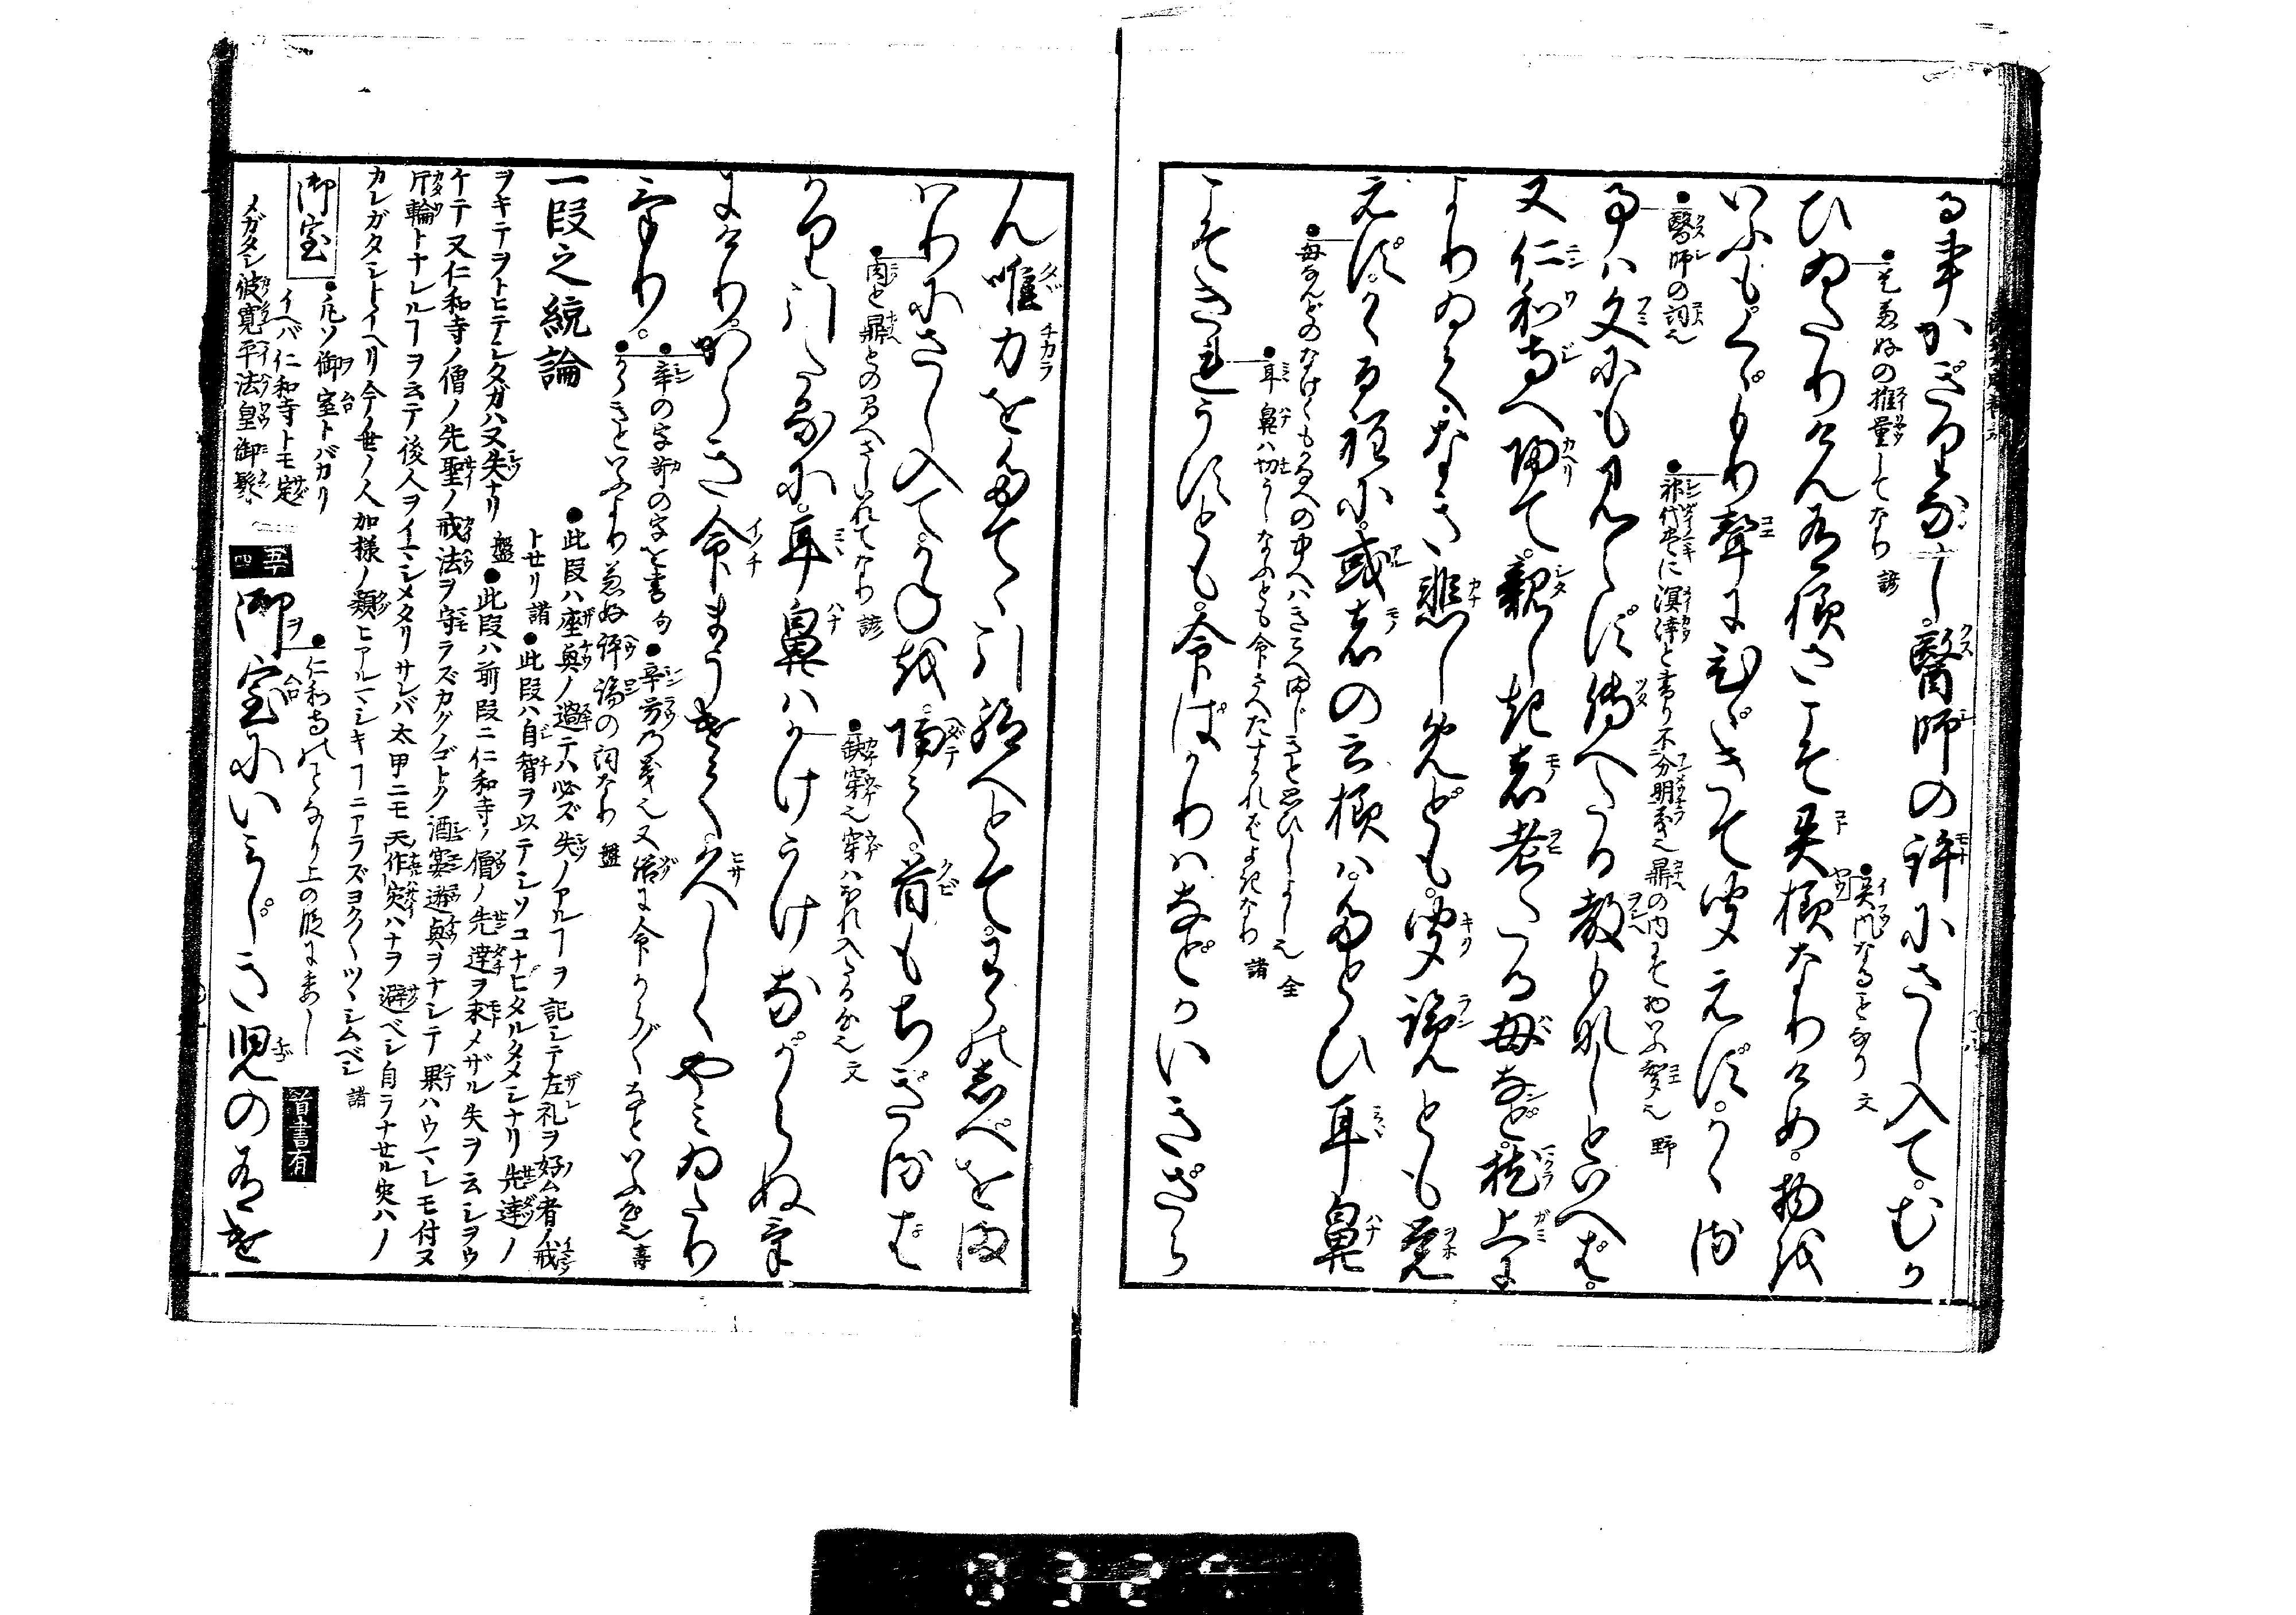 る事かぎりなし。醫師の許にさし入て。むか
●是兼好の推量してなり 諺
ひゐたりけん有樣さこそ異樣なりけめ。物を
●異風なることなり 文
いふも。くゞもり聲にひゞきて聞えず。かゝ
●醫師の詞也
●神代巻に溟涬と書り不分明義也鼎の内にて物いふ聲也 野
る事ハ文にも見えず傳へたる教もなしといへば。
又仁和寺へ帰て。親しき者老たる母など。枕上に
よりゐてなき悲しめども。聞覧とも覚
えず。かゝる程に。或者の云樣ハ。たとひ耳鼻
●母なんどのなげくも
●耳鼻ハ切うしなふとも命さへたすかれば
こそきれうすとも。命ばかりハなどかいきざら
ん唯力をたてゝ引給へとて。わらのしべをま
はりにさし入て。かねを隔て。首もちぎるば
●肉と鼎との間へさしいれてなり 諺
かり引たるに。耳鼻ハかけうげながらぬけ
●缺穿也穿ハほれ入たる
にけり。からき命まうけて。久しくやみゐたり
けり。
●辛の字苛の字を書 句 ●辛労乃義也又俗に命からがくなどいふ
●からきといふより兼好評論の詞なり 盤
一段之統論
●此段ハ座興ノ過テハ必ズ失ノアルヿヲ記シテ左礼ヲ好ム者ノ戒
トせリ 諸 ●此段ハ自智ヲ以テシソコナヒタルタメシナリ先達ノ
ヲキテヲトヒテシタガハヌ失ナリ 盤 ●此段ハ前段ニ仁和寺ノ僧ノ先達ヲ求メザル失ヲ云シヲウ
ケテ又仁和寺ノ僧ノ先聖ノ戒法ヲ守ラズカクノゴトク酒宴遊興ヲナシテ果ハウマシモ付ヌ
片輪トナレルヿヲ云テ後人ヲイマシメタリサレバ太甲ニモ天作災ハナヲ避ベシ自ラナせル災ハノ
カレガタシトイヘリ今ノ世ノ人加樣ノ類ヒアルマシキヿニアラズヨク〱ツヽシムベシ 諸
御室
●凡ソ御室トバカリ
イヘバ仁和寺トモ定
メガタシ彼寛平法皇御髪
五十四
御室にいみじき児の有け
●仁和寺のことなり上の段に委し
首書有